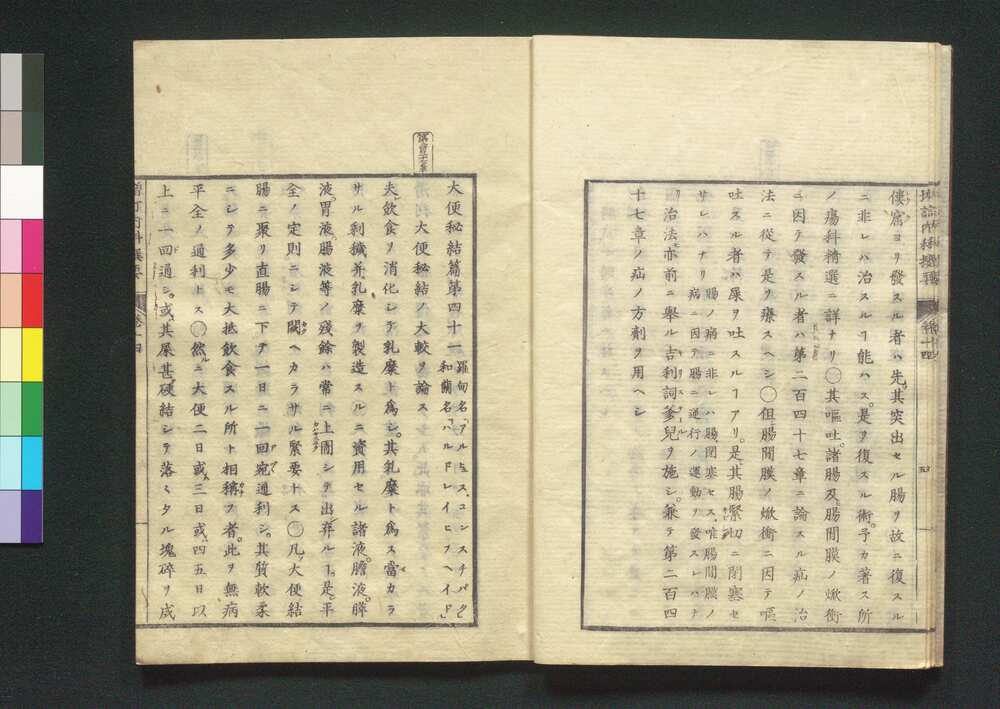 僂窩ヨリ發スル者ハ先其突出セル腸ヲ故ニ復スル
ニ非レハ治スルヿ能ハス是ヲ復スル術予カ著ス所
ノ瘍科精選ニ詳ナリ○其嘔吐諸腸及腸間膜ノ焮衝
ニ因テ發スル者ハ第二百四十七章ニ論スル疝ノ治
法ニ從テ是ヲ療スヘシ○但腸間膜ノ焮衝ニ因テ嘔
吐スル者ハ屎ヲ吐スルヿアリ是其腸緊切ニ閉塞セ
サレハナリ
腸ノ病ニ非レハ腸閉塞セス唯腸間膜ノ
病ニ因テ腸ニ逆行ノ運動ヲ發スレハナ
リ
治法亦前ニ擧ル吉利詞爹兒ヲ施シ兼テ第二百四
十七章ノ疝ノ方劑ヲ用ヘシ
大便秘結篇第四十一
羅甸名アルヒュスコンスチパタ
和蘭名ハルドレイヒヲヘイド
大便秘結ノ大較ヲ論ス
夫飲食ヲ消化シテ乳糜ト為シ其乳糜ト為ス當カラ
サル剰穢并乳糜ヲ製造スルニ資用セル諸液膽液膵
液胃液腸液等ノ殘餘ハ常ニ上圊シテ出弃ルヿ是平
全ノ定則ニシテ闕ヘカラサル緊要トス○凡大便結
腸ニ聚リ直腸ニ下テ一日ニ一回宛通利シ其質軟柔
ニシテ多少モ大抵飲食スル所ト相稱フ者此ヲ無病
平全ノ通利トス○然ニ大便二日或三日或四五日以
上ニ一回通シ或其屎甚硬結シテ落ミタル塊碎ヲ成